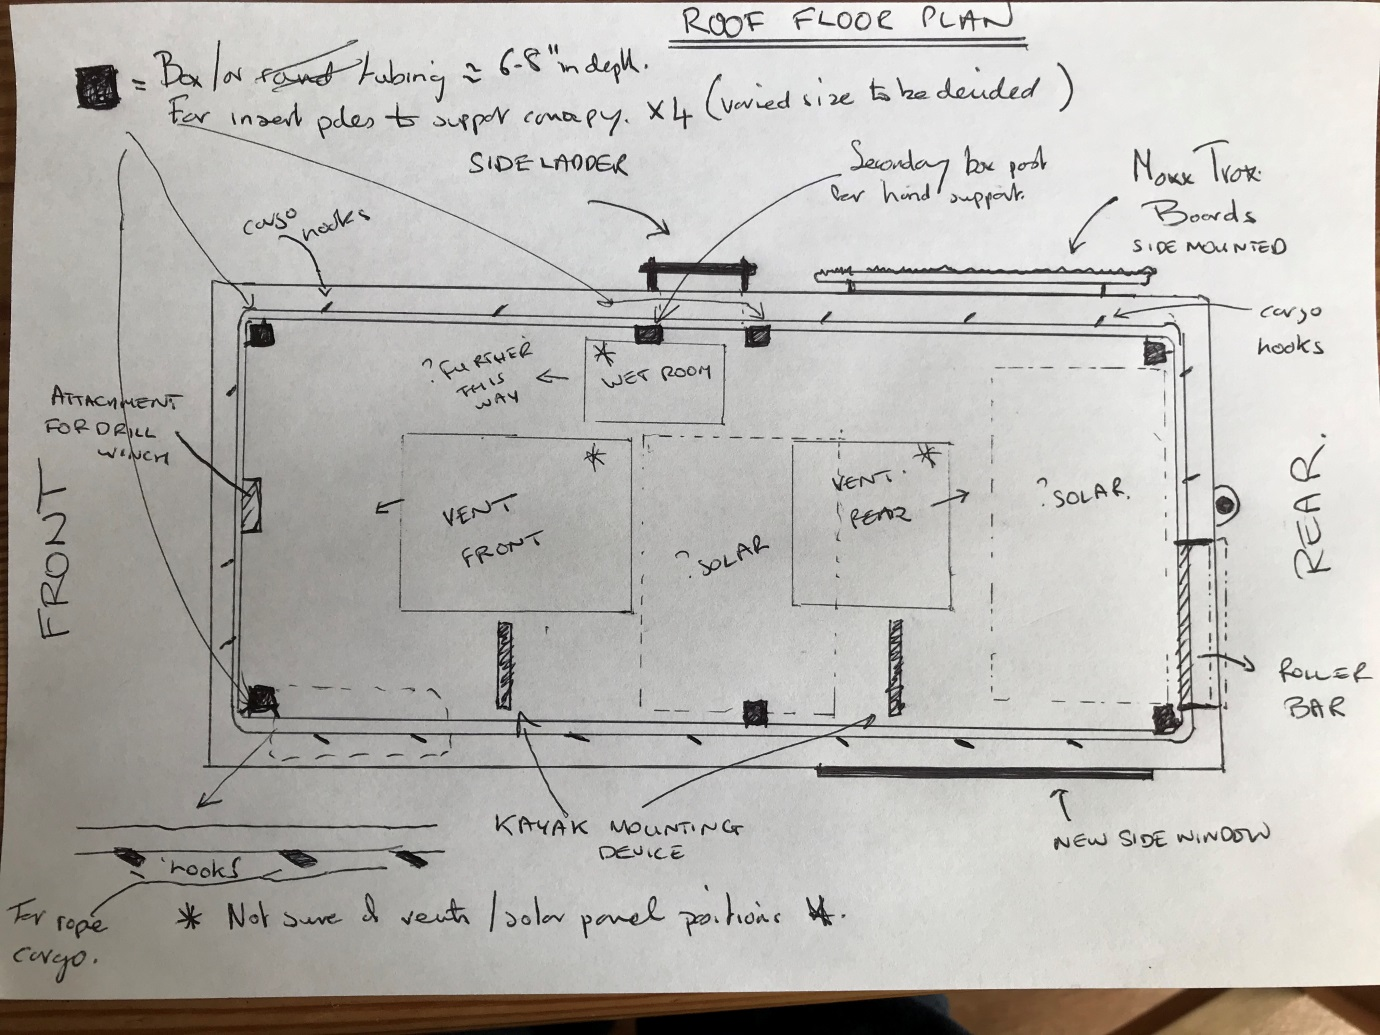 ROOF FLOOR PLAN
= Box/or round tubing ≈ 6-8" in depth.
For insert poles to support canopy. X4 (varied size to be decided)
SIDE LADDER
Secondary box post
for hand support.
Maxx Trax
Boards
SIDE MOUNTED
cargo
hooks
cargo
hooks
? FURTHER
THIS
WAY
* WET ROOM
ATTACHMENT
FOR DRILL
WINCH
FRONT
*
VENT
FRONT
? SOLAR
*
VENT.
REAR
? SOLAR.
REAR.
ROLLER
BAR
KAYAK MOUNTING
DEVICE
NEW SIDE WINDOW
hooks
For rope
cargo.
* Not sure of vents/solar panel positions *.